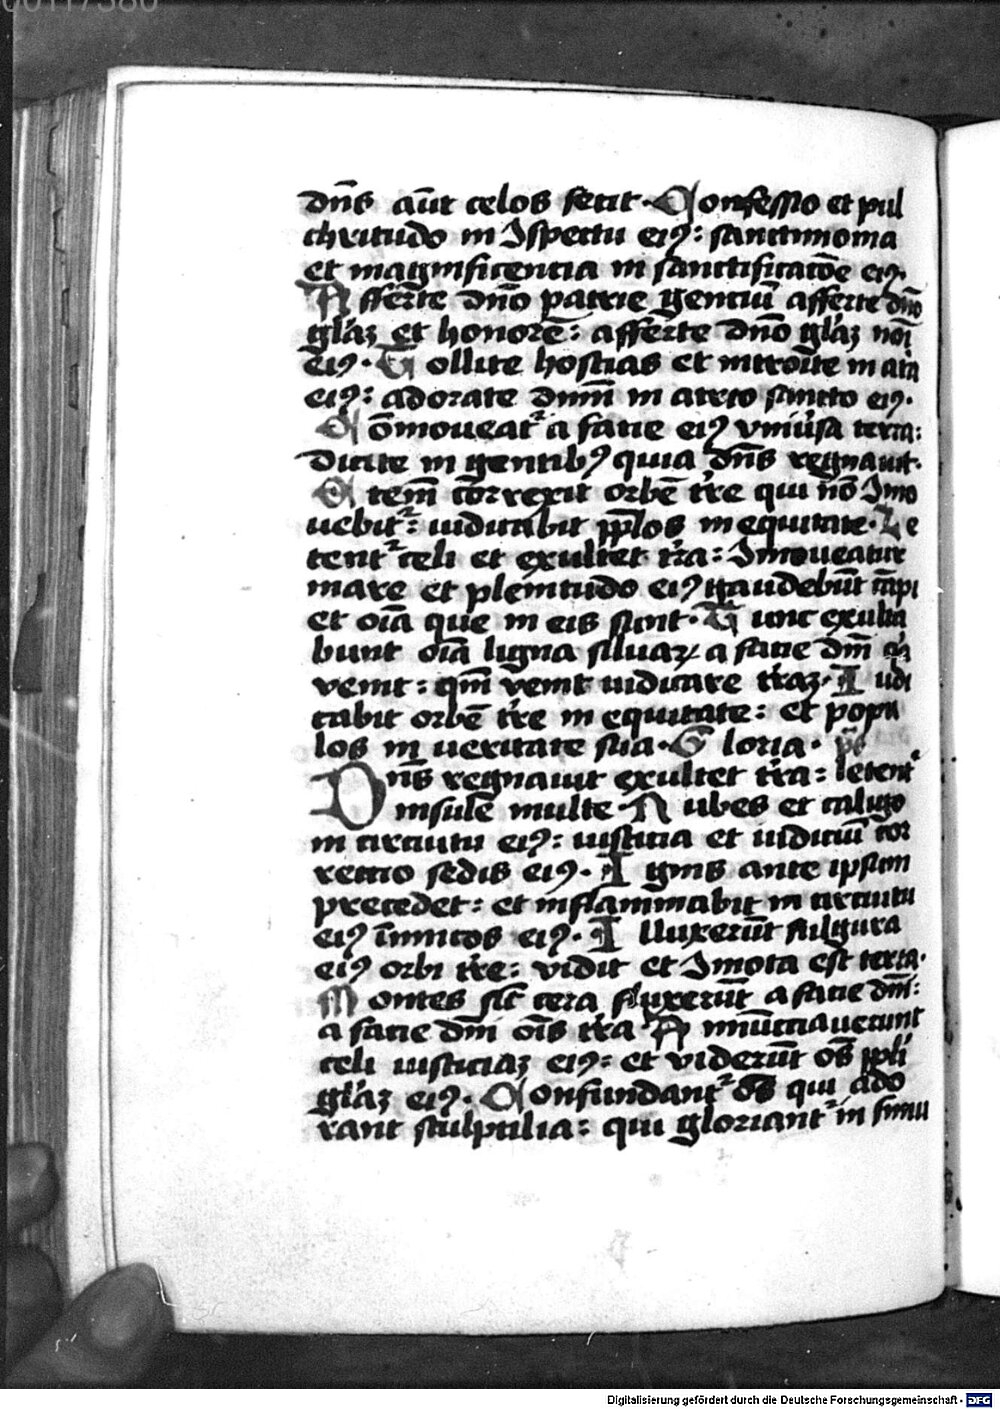 00117380
dn̄s aūt celos fecit · Confessio et pul
chritudo in Ispectu eiꝰ : sanctimonia
et magnificentia in sanctificatōe eiꝰ .
Afferte dn̄o patrie gentiū afferte dn̄o
gl'aꝫ et honorē : afferte dn̄o gl'aꝫ noī
eiꝰ . Tollite hostias et introīte in atria
eiꝰ : adorate dn̄m in atrio sancto eiꝰ .
Cōmoueat᷑ a facie eiꝰ vniūsa terra :
dicite in gentibꝰ quia dn̄s regnauit .
Etenī correxit orbē tr̄e qui nō Imo
uebit᷑ : iudicabit ppl̄os in equitate . Le
tent᷑ celi et exultet tr̄a : Imoueatur
mare et plenitudo eiꝰ gaudebūt cāpi
et oīa que in eis sunt . Tunc exulta
bunt oīa ligna siluaꝝ a facie dn̄i
venit : qm̄ venit iudicare tr̄aꝫ . Iudi
cabit orbē tr̄e in equitate : et popu
los in ueritate sua . Gloria . ps̄
Dn̄s regnauit exultet tr̄a : letent᷑
insule multe Nubes et caligo
in circuitu eiꝰ : iusticia et iudiciū cor
rectio sedis eiꝰ . Ignis ante ipsum
precedet : et inflammabit in circuitu
eiꝰ inimicos eiꝰ . Illuxerūt fulgura
eiꝰ orbi tr̄e : vidit et Imota est terra .
Montes sic̄ cera fluxerūt a facie dn̄i :
a facie dn̄i oīs tr̄a Annūciauerunt
celi iusticiaꝫ eiꝰ : et viderūt oēs ppl̄i
gl'aꝫ eiꝰ . Confundant᷑ oēs qui ado
rant sculptilia : qui gloriant᷑ in simu
Digitalisierung gefördert durch die Deutsche Forschungsgemeinschaft - DFG